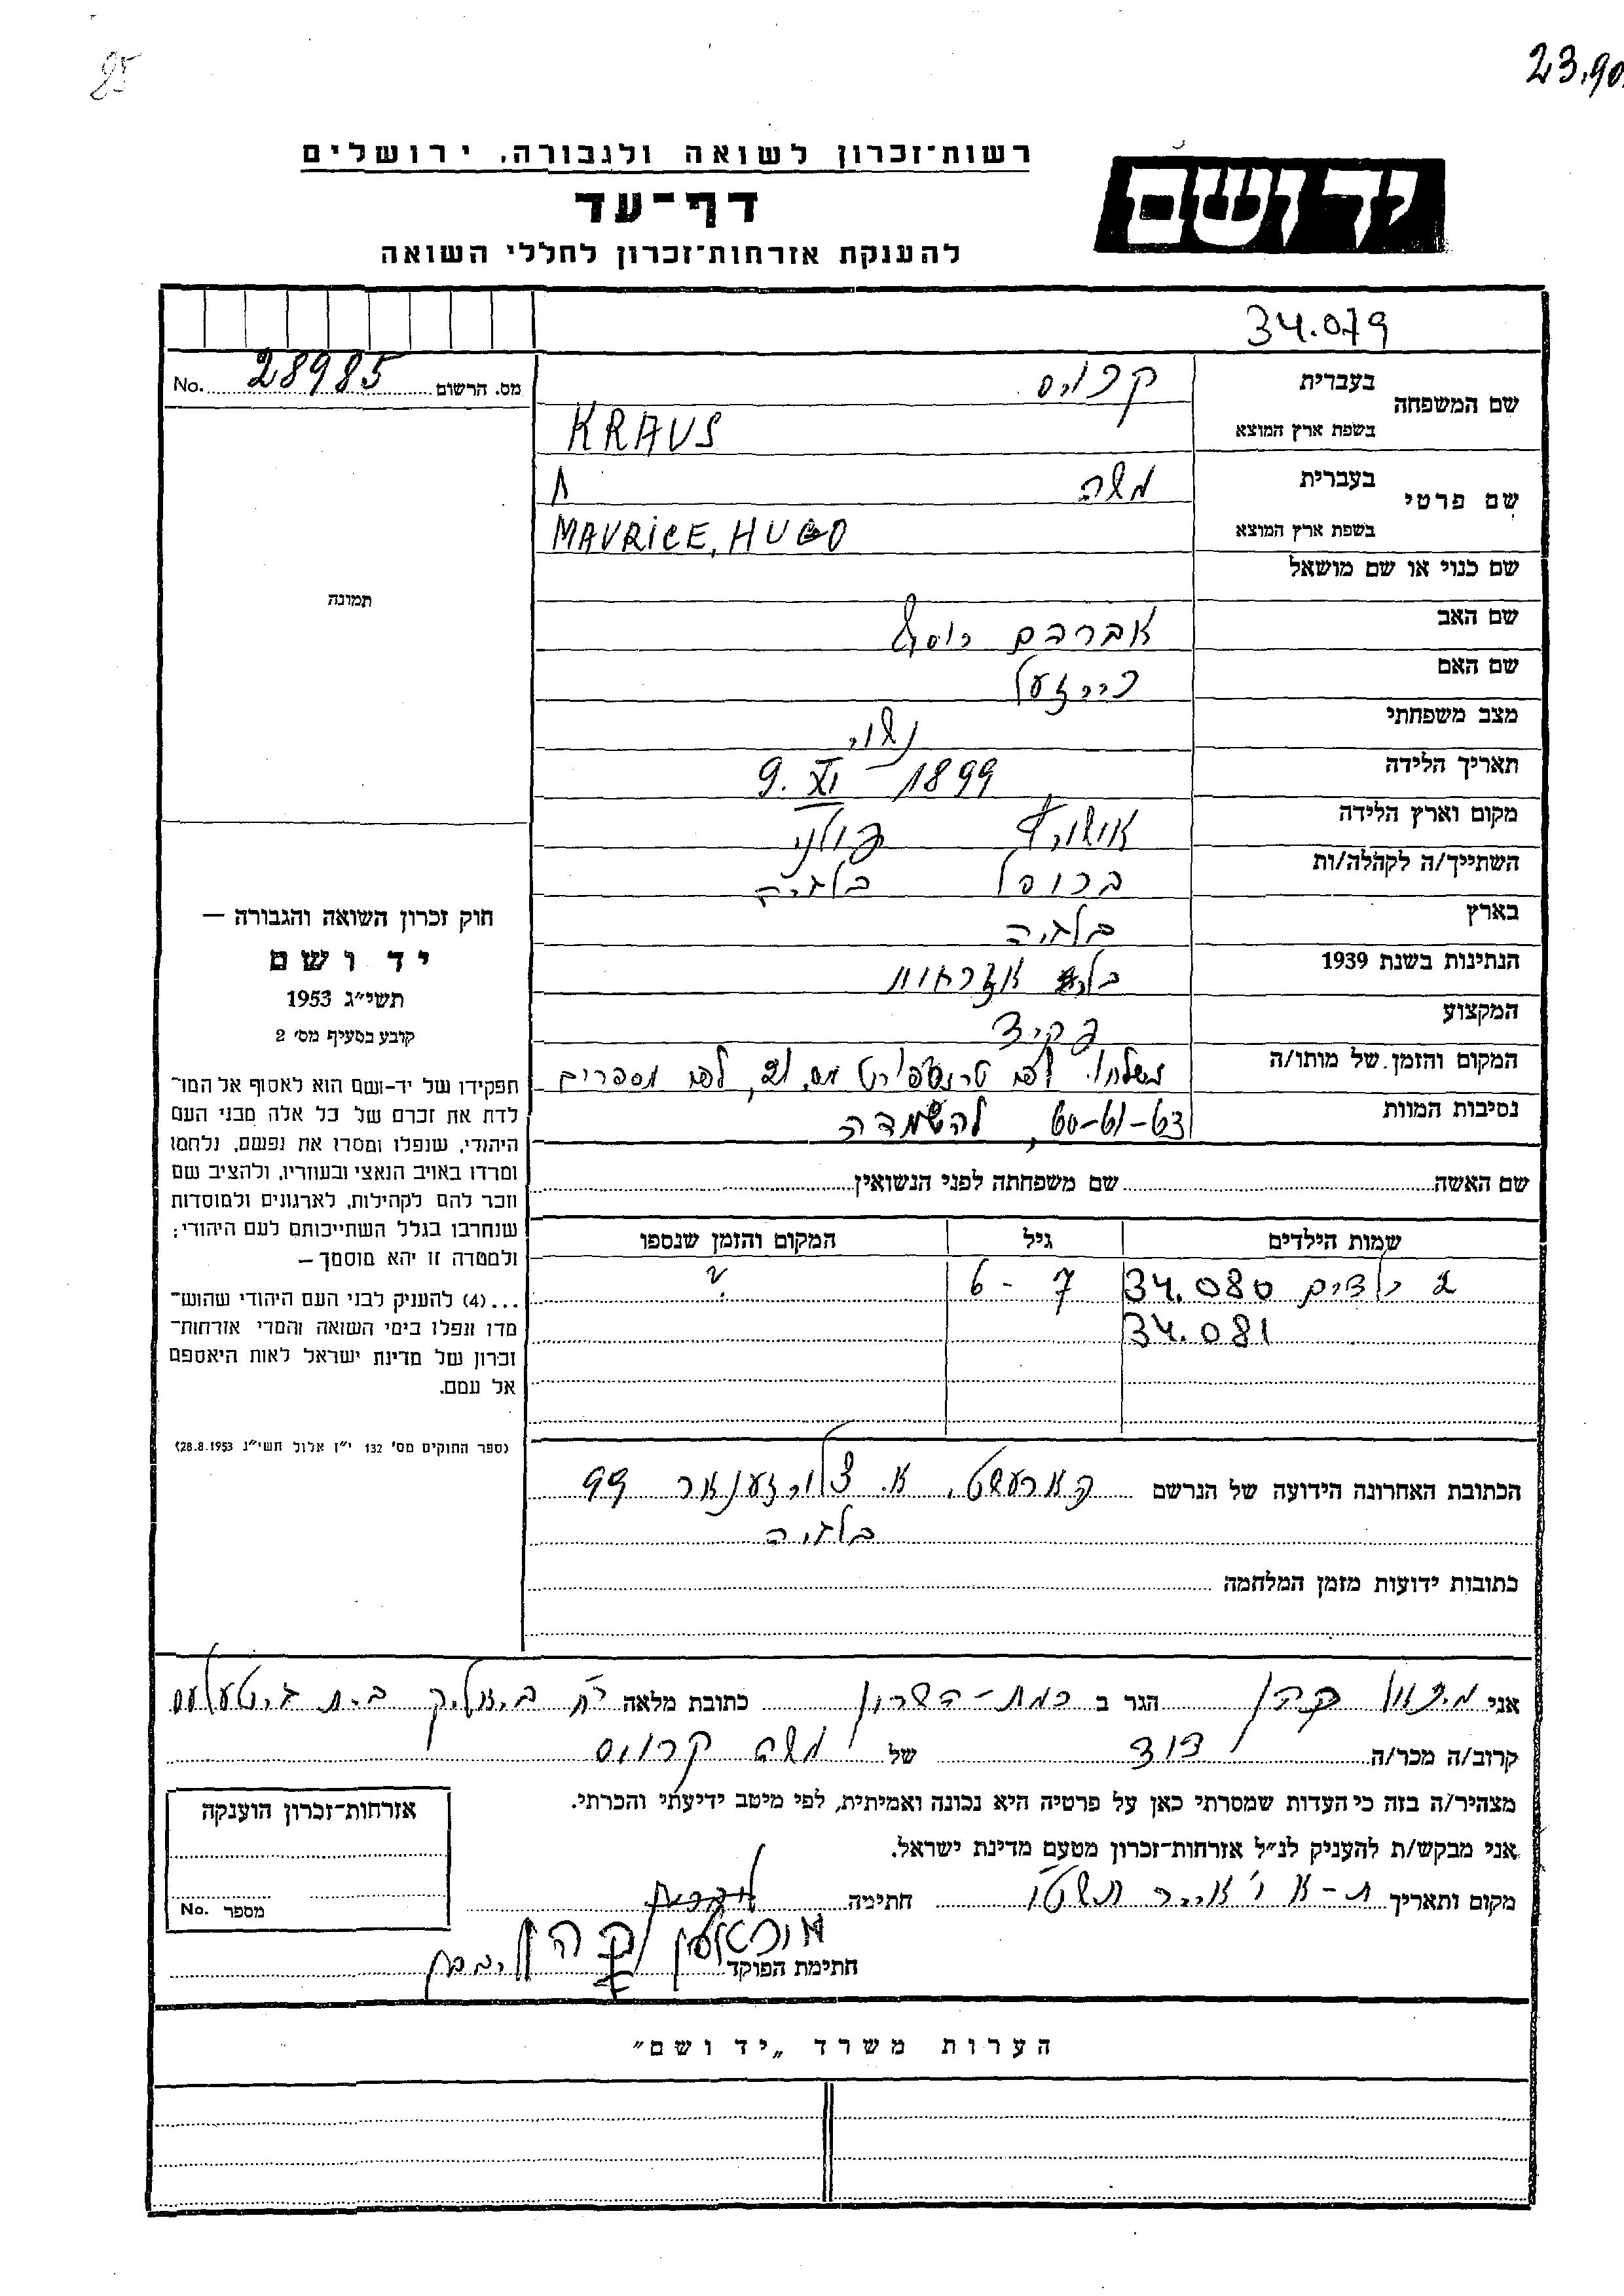 23.90
25
רשות־זכרון לשואה ולגבורה, ירושלים
יד ושם
דף־עד
להענקת אזרחות־זכרון לחללי השואה
34.079
No. 28985 מס. הרשום
שם המשפחה
בעברית קרויס
בשפת ארץ המוצא KRAUS
שם פרטי
בעברית משה
בשפת ארץ המוצא MAURICE, HUGO
שם כנוי או שם מושאל
שם האב אברהם יוסף
שם האם רייזעל
מצב משפחתי נשוי
תאריך הלידה 9. XI 1899
מקום וארץ הלידה פולני
השתייך/ה לקהלה/ות בריסל בלגיה
בארץ בלגיה
הנתינות בשנת 1939 בלי אזרחות
המקצוע פקיד
המקום והזמן של מותו/ה משלוח לפי טרנספורט מס. 21, לפי מספרים
נסיבות המוות 60-61-63, להשמדה
תמונה
חוק זכרון השואה והגבורה —
יד ושם
תשי״ג 1953
קובע בסעיף מס׳ 2
תפקידו של יד-ושם הוא לאסוף אל המו־
לדת את זכרם של כל אלה מבני העם
היהודי, שנפלו ומסרו את נפשם, נלחמו
ומרדו באויב הנאצי ובעוזריו, ולהציב שם
וזכר להם לקהילות, לארגונים ולמוסדות
שנחרבו בגלל השתייכותם לעם היהודי;
ולמטרה זו יהא מוסמך —
...(4) להעניק לבני העם היהודי שהוש־
מדו ונפלו בימי השואה והמרי אזרחות־
זכרון של מדינת ישראל לאות היאספם
אל עמם.
(ספר החוקים מס׳ 132 י״ז אלול תשי״ג 28.8.1953)
שם האשה שם משפחתה לפני הנשואין
שמות הילדים גיל המקום והזמן שנספו
2 ילדים 34.080 7 - 6 ?
34.081
הכתובת האחרונה הידועה של הנרשם 99
בלגיה
כתובות ידועות מזמן המלחמה
אני קהן הגר ב רמת-השרון כתובת מלאה רח ביאליק בית
קרוב/ה מכר/ה דוד של משה קרויס
מצהיר/ה בזה כי העדות שמסרתי כאן על פרטיה היא נכונה ואמיתית, לפי מיטב ידיעתי והכרתי.
אני מבקש/ת להעניק לנ״ל אזרחות־זכרון מטעם מדינת ישראל.
מקום ותאריך ת-א ו׳ אייר תשטו חתימה
קהן
חתימת הפוקד
אזרחות־זכרון הוענקה
No. מספר
הערות משרד „יד ושם״